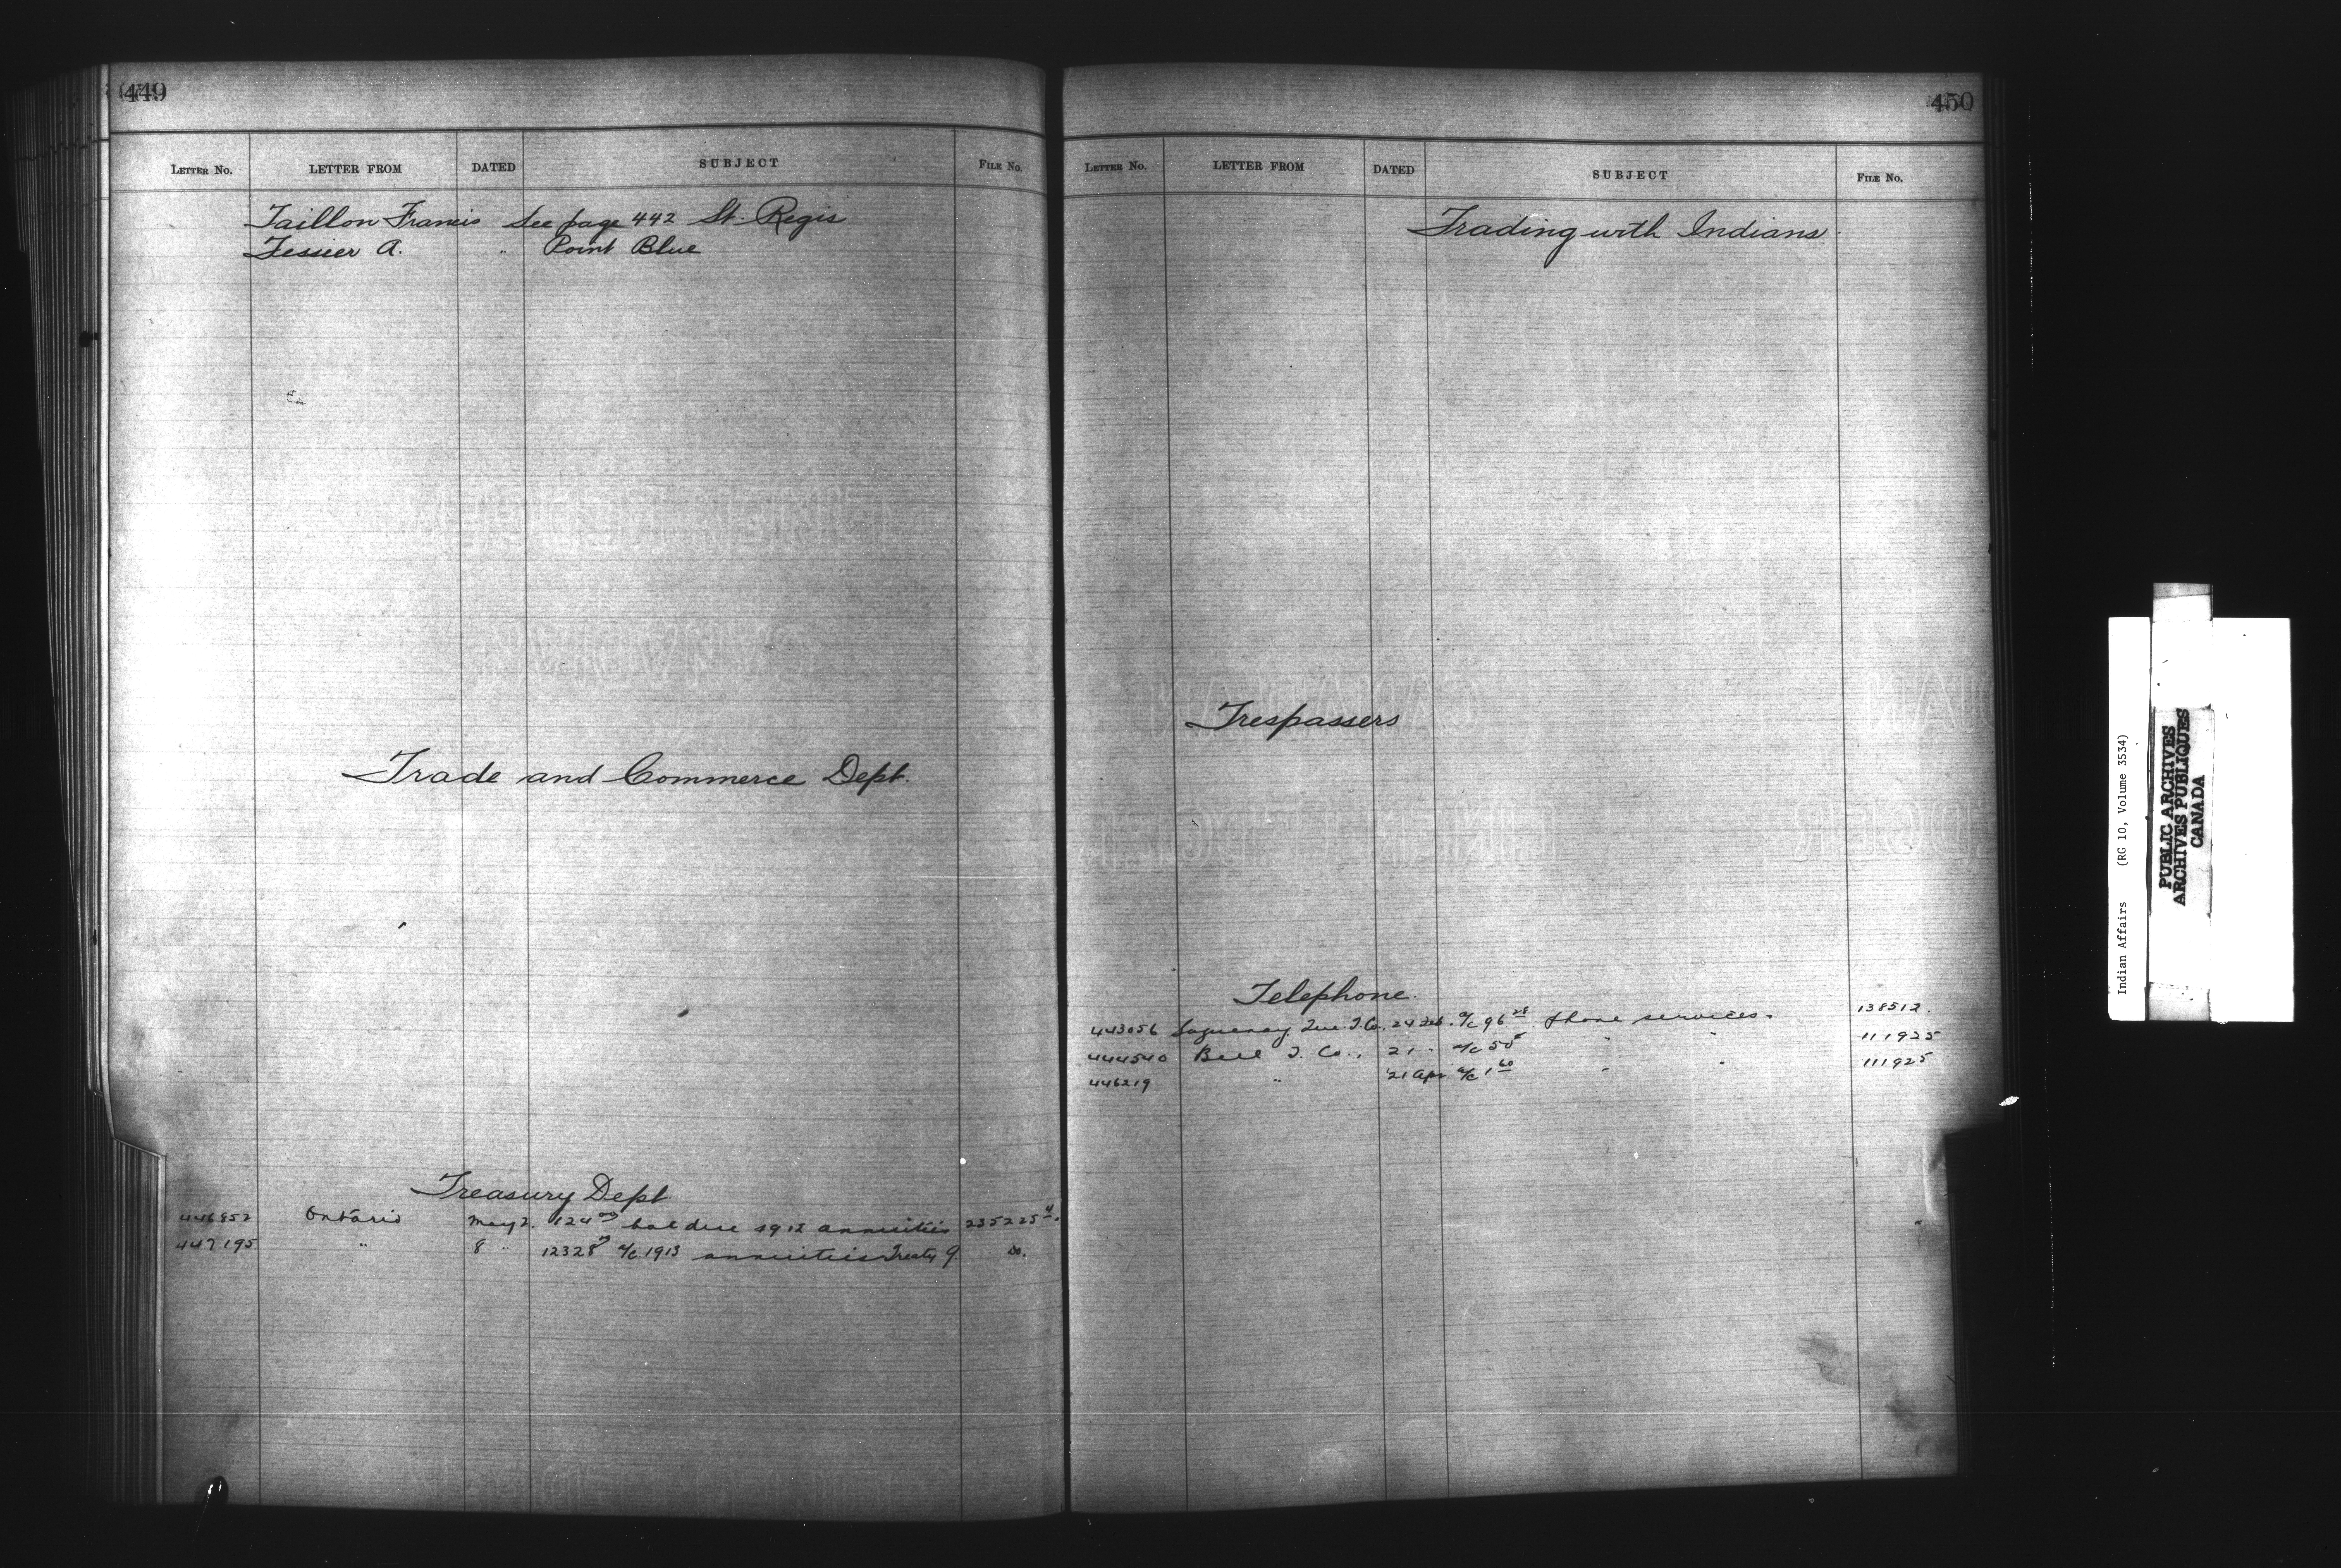 449
LETTER No. LETTER FROM DATED SUBJECT FILE No.
Taillon Francis See page 442 St. Regis
Tessier A. " Point Blue
Trade and Commerce Dept.
Treasury Dept
446852 Ontario May 2. 124 00 bal due 1912 annuities 235225-4.
447195 " 8 " 12328 a/c 1913 annuities Treaty 9. do.
450
LETTER No. LETTER FROM DATED SUBJECT FILE No.
Trading with Indians.
Trespassers
Telephone.
443056 Saguenay Que. T. Co. 24 Feb. a/c 96 28 phone services. 138512.
444540 Bell T. Co., 21 " a/c 50 5 " " 111925
446219 " 21 Apr a/c 1 60 " " 111925
Indian Affairs (RG 10, Volume 3534)
PUBLIC ARCHIVES
ARCHIVES PUBLIQUES
CANADA